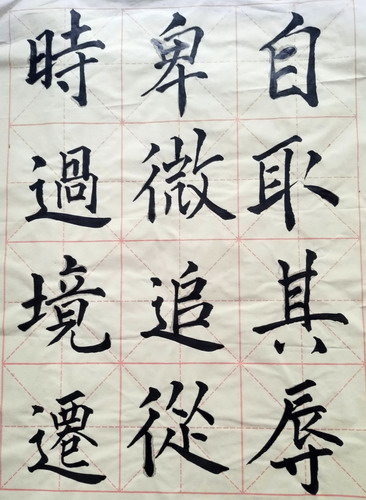 自取其辱
卑微追從
時過境遷